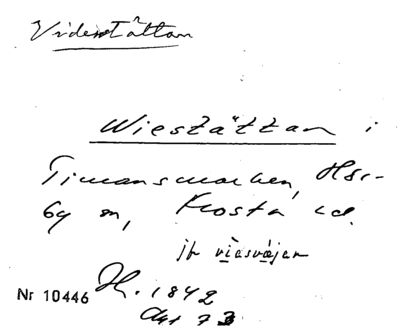 Videstättan
Wiestättan i
Timansmarken, Hör-
by sn, Frosta hd.
jfr vìesvǻjen
Nr 10446 H. 1842
Akt 73